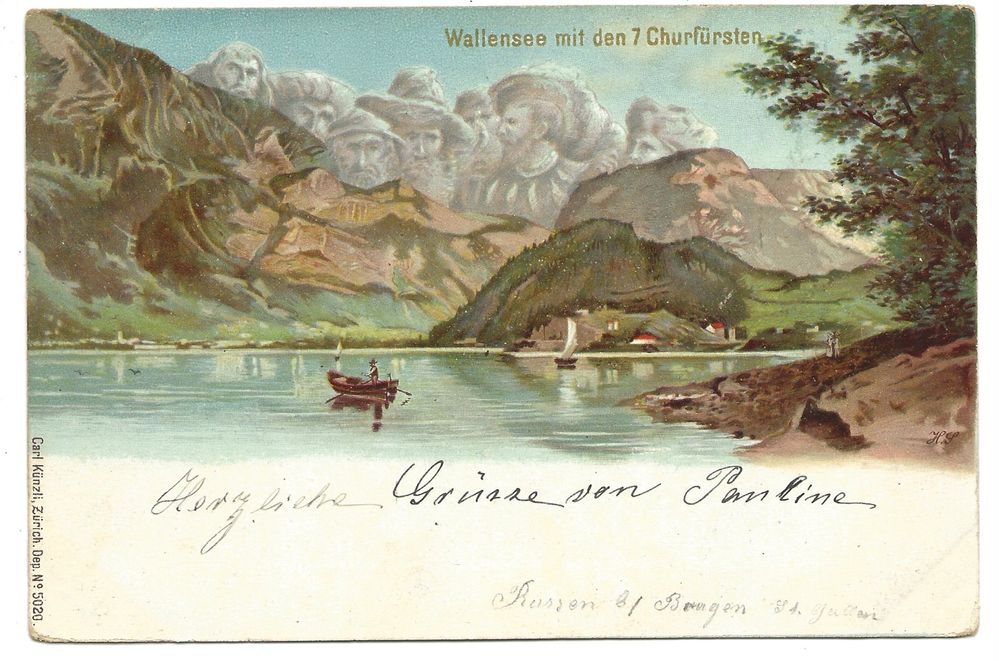 Wallensee mit den 7 Churfürsten.
H.S
Carl Künzli, Zürich. Dep. Nº 5020.
Herzliche Grüsse von Pauline
b/ St. Gallen